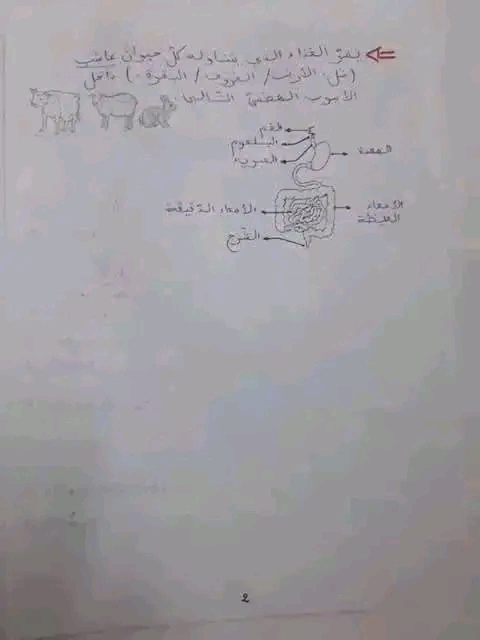 يمرّ الغذاء الذي يتناوله كلّ حيوان عاشب
(مثل الأرنب / الخروف / البقرة ..) داخل
الأنبوب الهضميّ التالي:
الفم
البلعوم
المريء
المعدة
الأمعاء الدّقيقة
الأمعاء
الغليظة
الشّرج
2